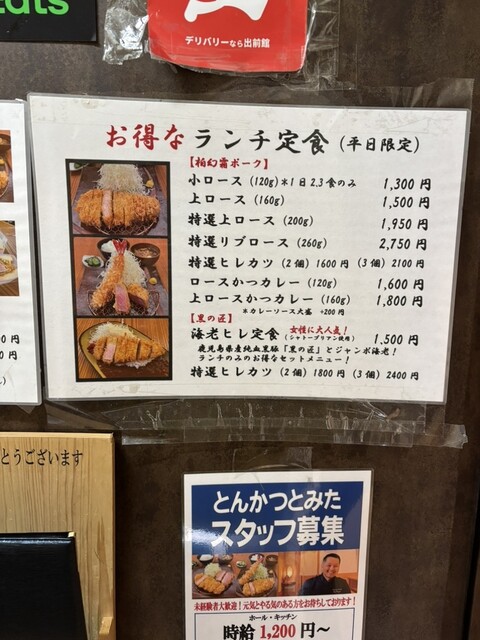 Eats
デリバリーなら出前館
お得な ランチ定食 (平日限定)
【柏幻霜ポーク】
小ロース (120g) ＊1日2,3食のみ 1,300 円
上ロース (160g) 1,500 円
特選上ロース (200g) 1,950 円
特選リブロース (260g) 2,750 円
特選ヒレカツ (2個) 1600 円 (3個) 2100 円
ロースかつカレー (120g) 1,600 円
上ロースかつカレー (160g) 1,800 円
＊カレーソース大盛 +200 円
【黒の匠】
海老ヒレ定食 女性に大人気！ (シャトーブリアン使用) 1,500 円
鹿児島県産純血黒豚「黒の匠」とジャンボ海老！
ランチのみのお得なセットメニュー！
特選ヒレカツ (2個) 1800 円 (3個) 2400 円
0 円
0 円
とうございます
とんかつとみた
スタッフ募集
未経験者大歓迎！元気とやる気のある方をお待ちしております！
ホール・キッチン
時給 1,200 円～